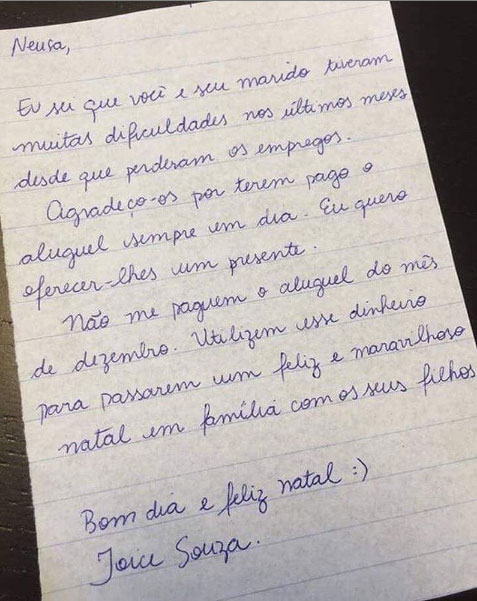 Neusa,
Eu sei que você e seu marido tiveram
muitas dificuldades nos últimos meses
desde que perderam os empregos.
Agradeço-os por terem pago o
aluguel sempre em dia. Eu quero
oferecer-lhes um presente.
Não me paguem o aluguel do mês
de dezembro. Utilizem esse dinheiro
para passarem um feliz e maravilhoso
natal em família com os seus filhos
Bom dia e feliz natal :)
Joice Souza.